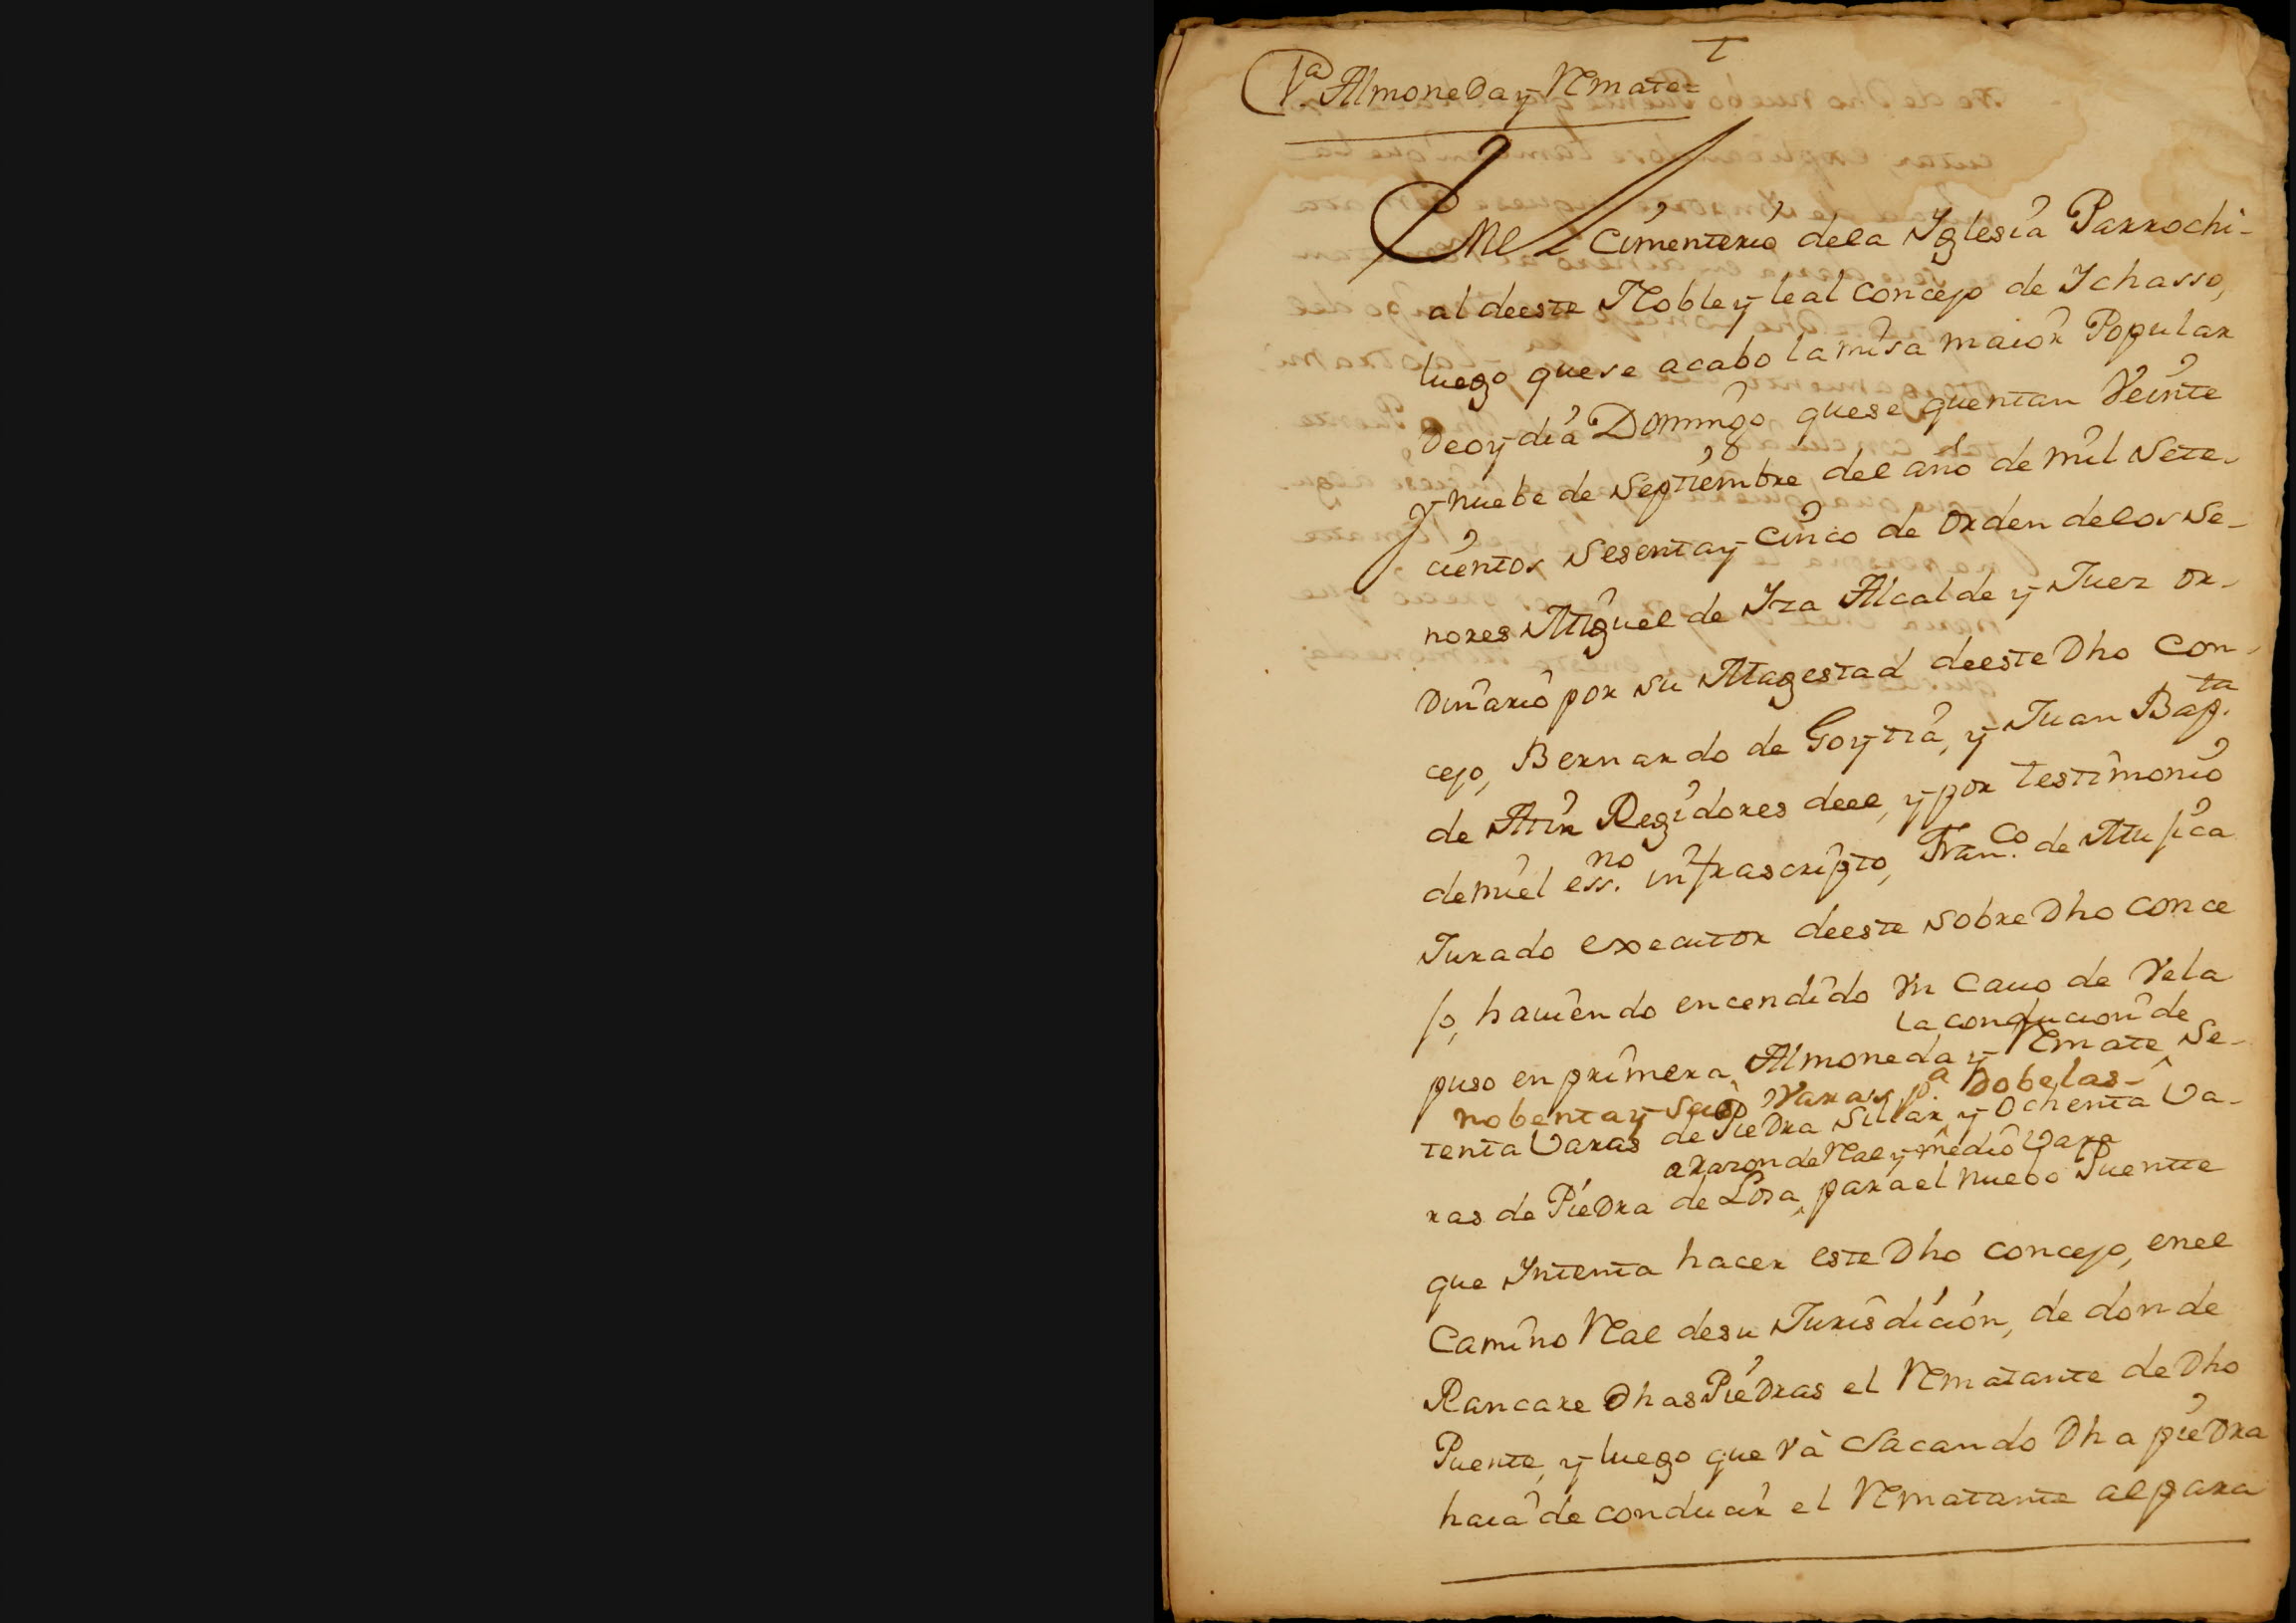 1.ª Almoneda y Remate=
En el Cimenterio dela Yglesia Parrochi-
al deeste Noble y leal concejo de Ychasso,
luego quese acabo la misa maior Popular
de oy dia Domingo quese quentan Veinte
y nuebe de Septiembre del año de mil Sete-
cientos Sesenta y Cinco de orden delos Se-
ñores Miguel de Yza Alcalde y Juez or-
dinario por su Magestad deeste Dho Con-
cejo, Bernardo de Goytia, y Juan Bap.ta
de Atin Regidores deel, y por testimonio
demi el ess.no infrascripto, Fran.co de Mujica
Jurado executor deeste sobre Dho conce
jo, haviendo encendido Vn Cauo de Vela
la conducion de
puso en primera Almoneda y Remate Se-
nobenta y seis Varas p.a Dobelas-
tenta Varas de Piedra Sillar y Ochenta Va-
a razon de Real y medio Vara
ras de Piedra de Losa, para el nuebo Puente
que Yntenta hacer este Dho concejo, en el
Camino Real desu Jurisdición, de donde
Rancare Dhas Piedras el Rematante de Dho
Puente, y luego que và Sacando Dha piedra
haia de conducir el Rematante al para